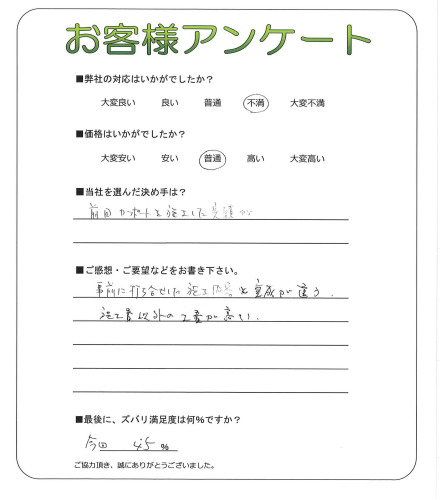 お客様アンケート
■弊社の対応はいかがでしたか？
大変良い 良い 普通 不満 大変不満
■価格はいかがでしたか？
大変安い 安い 普通 高い 大変高い
■当社を選んだ決め手は？
前回カーポートを施工した実績から
■ご感想・ご要望などをお書き下さい。
事前に打ち合せした施工内容と完成が違う.
施工費以外の工費が高い.
■最後に、ズバリ満足度は何%ですか？
今回 45 %
ご協力頂き、誠にありがとうございました。